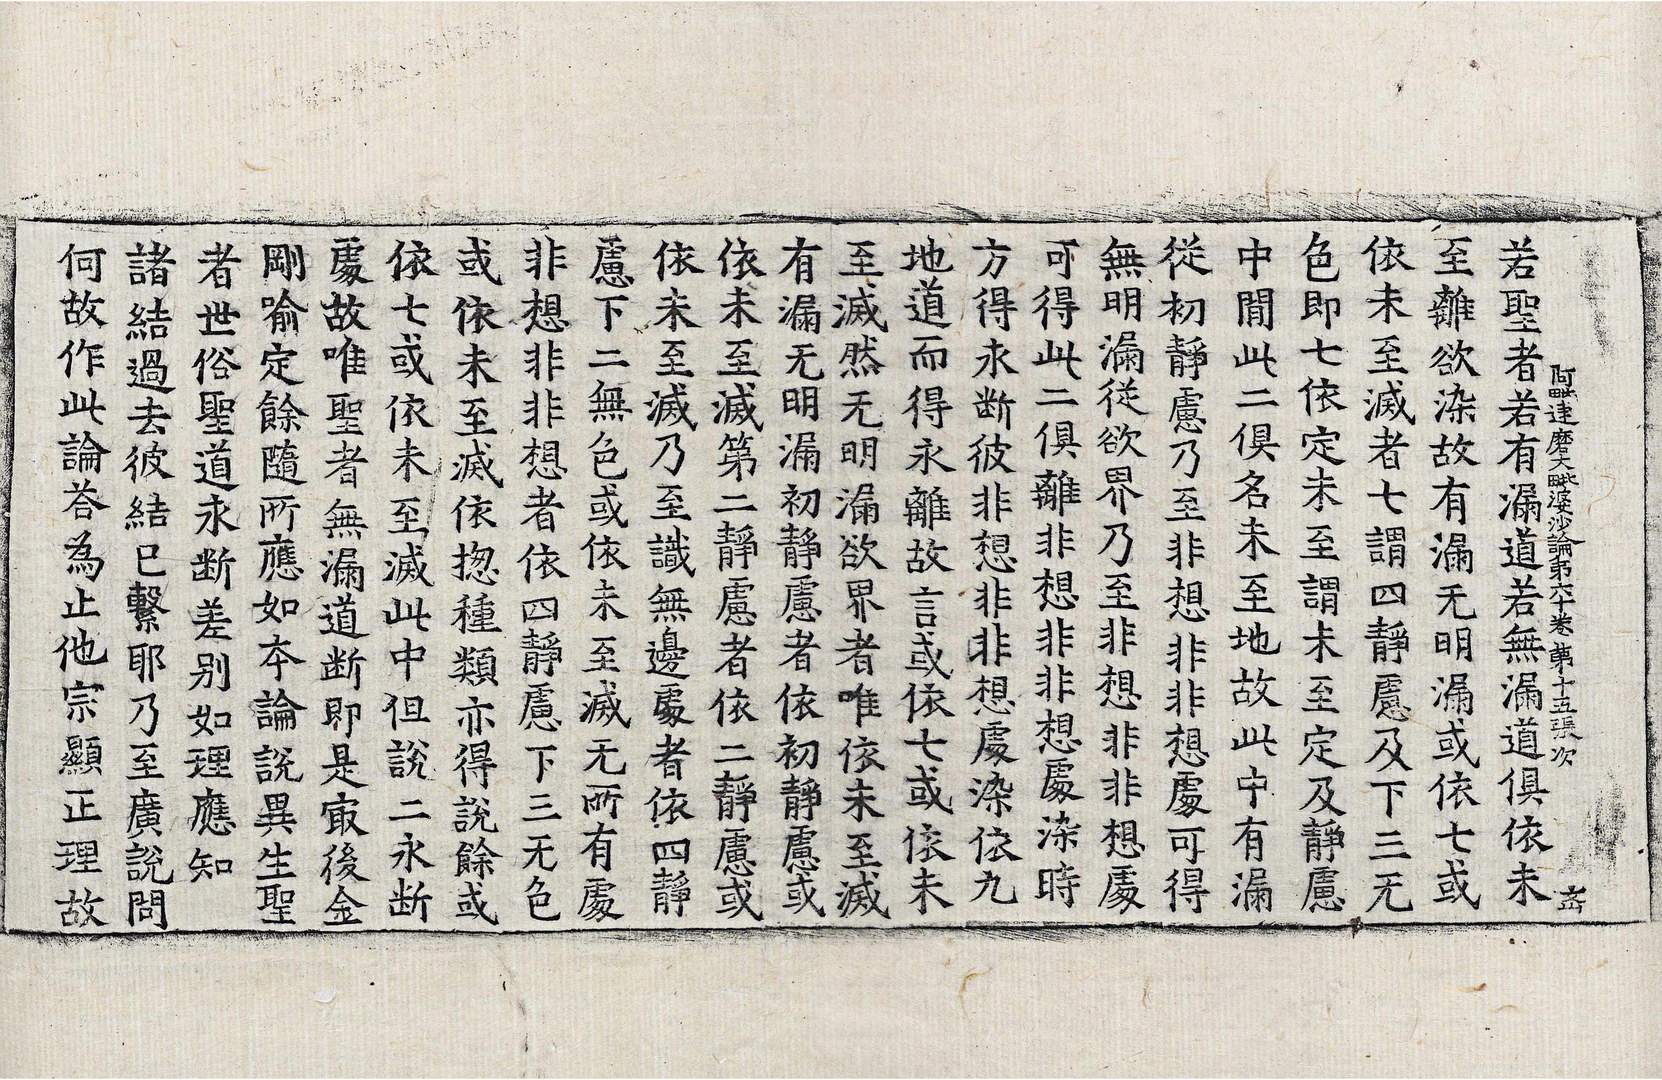 阿毗達磨大毗婆沙論第六十卷 第十五張 次
若聖者若有漏道若無漏道俱依未
至離欲染故有漏无明漏或依七或
依未至滅者七謂四靜慮及下三无
色即七依定未至謂未至定及靜慮
中間此二俱名未至地故此中有漏
從初靜慮乃至非想非非想處可得
無明漏從欲界乃至非想非非想處
可得此二俱離非想非非想處染時
方得永斷彼非想非非想處染依九
地道而得永離故言或依七或依未
至滅然无明漏欲界者唯依未至滅
有漏无明漏初靜慮者依初靜慮或
依未至滅第二靜慮者依二靜慮或
依未至滅乃至識無邊處者依四靜
慮下二無色或依未至滅无所有處
非想非非想者依四靜慮下三无色
或依未至滅依揔種類亦得說餘或
依七或依未至滅此中但說二永断
處故唯聖者無漏道断即是㝡後金
剛喻定餘隨所應如夲論說異生聖
者世俗聖道永断差别如理應知
諸結過去彼結已繫耶乃至廣說問
何故作此論荅為止他宗顯正理故